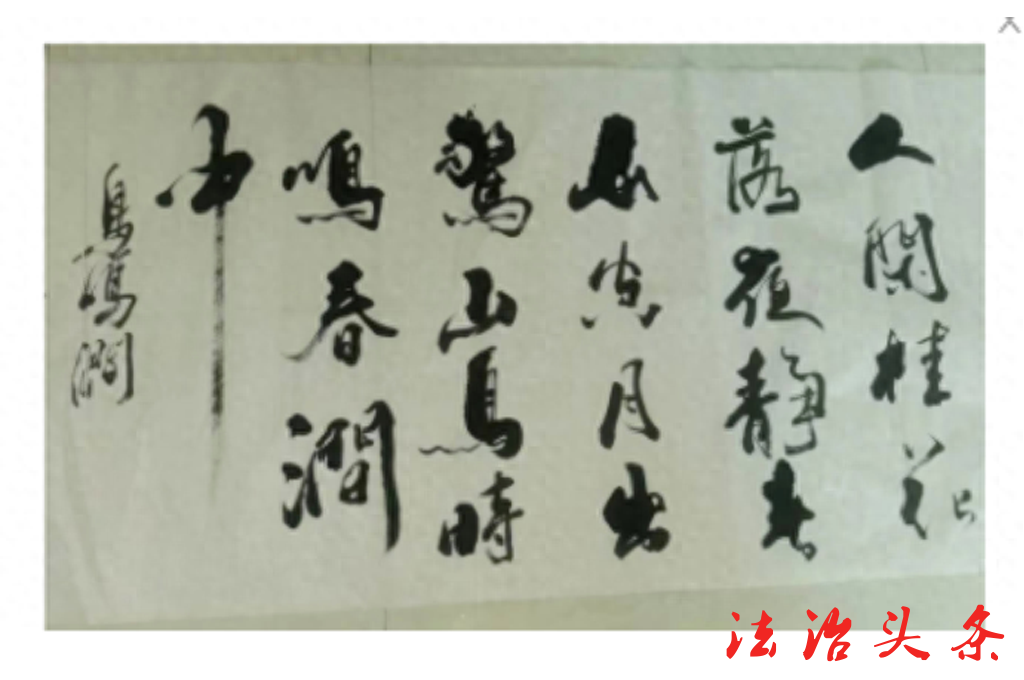 人閑桂花
落夜靜春
山空月出
驚山鳥時
鳴春澗
中
鳥鳴澗
法治头条